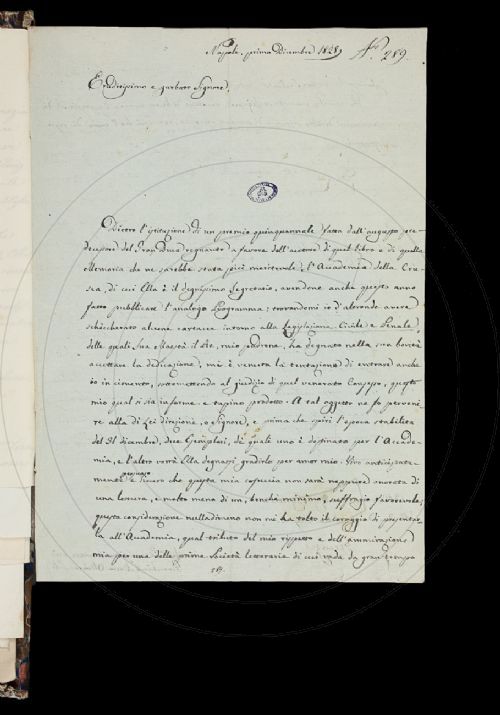 Napoli, primo Dicembre 1828
N.° 289.
Eruditissimo e garbato Signore,
Dietro l'istituzione di un premio quinquennale fatta dall'augusto pre-
decessore del Gran Duca regnante a favore dell'autore di quel libro e di quella
Memoria che ne sarebbe stata più meritevole; l'Accademia della Cru-
sca, di cui Ella è il degnissimo Segretario, avendone anche questo anno
fatto pubblicare l'analogo Programma; trovandomi io d'averne avere
schiccherato alcune cartacce intorno alla Legislazione Civile e Penale,
delle quali Sua Maestà il Re, mio padrone, ha degnato nella sua bontà
accettare la dedicazione, mi è venuta la tentazione di entrare anche
io in cimento, sottomettendo al giudizio di quel venerato Consesso, questo
mio qual si sia informe e tapino prodotto. A tal oggetto ne fo perveni-
re alla di Lei direzione, o Signore, e prima che spiri l'epoca stabilita
del 31 dicembre, due Esemplari, de' quali uno è destinato per l'Accade-
mia, e l'altro vorrà Ella degnarsi gradirlo per amor mio. Vivo anticipata-
mente persuaso e sicuro che questa mia cosuccia non sarà neppure onorata di
una lettura, e molto meno di un, benchè minimo, suffragio favorevole;
questa considerazione nulladimeno non mi ha tolto il coraggio di presentar-
la all'Accademia, qual tributo del mio rispetto e dell'ammirazione
mia per una delle prime Società letterarie di cui vada da gran tempo